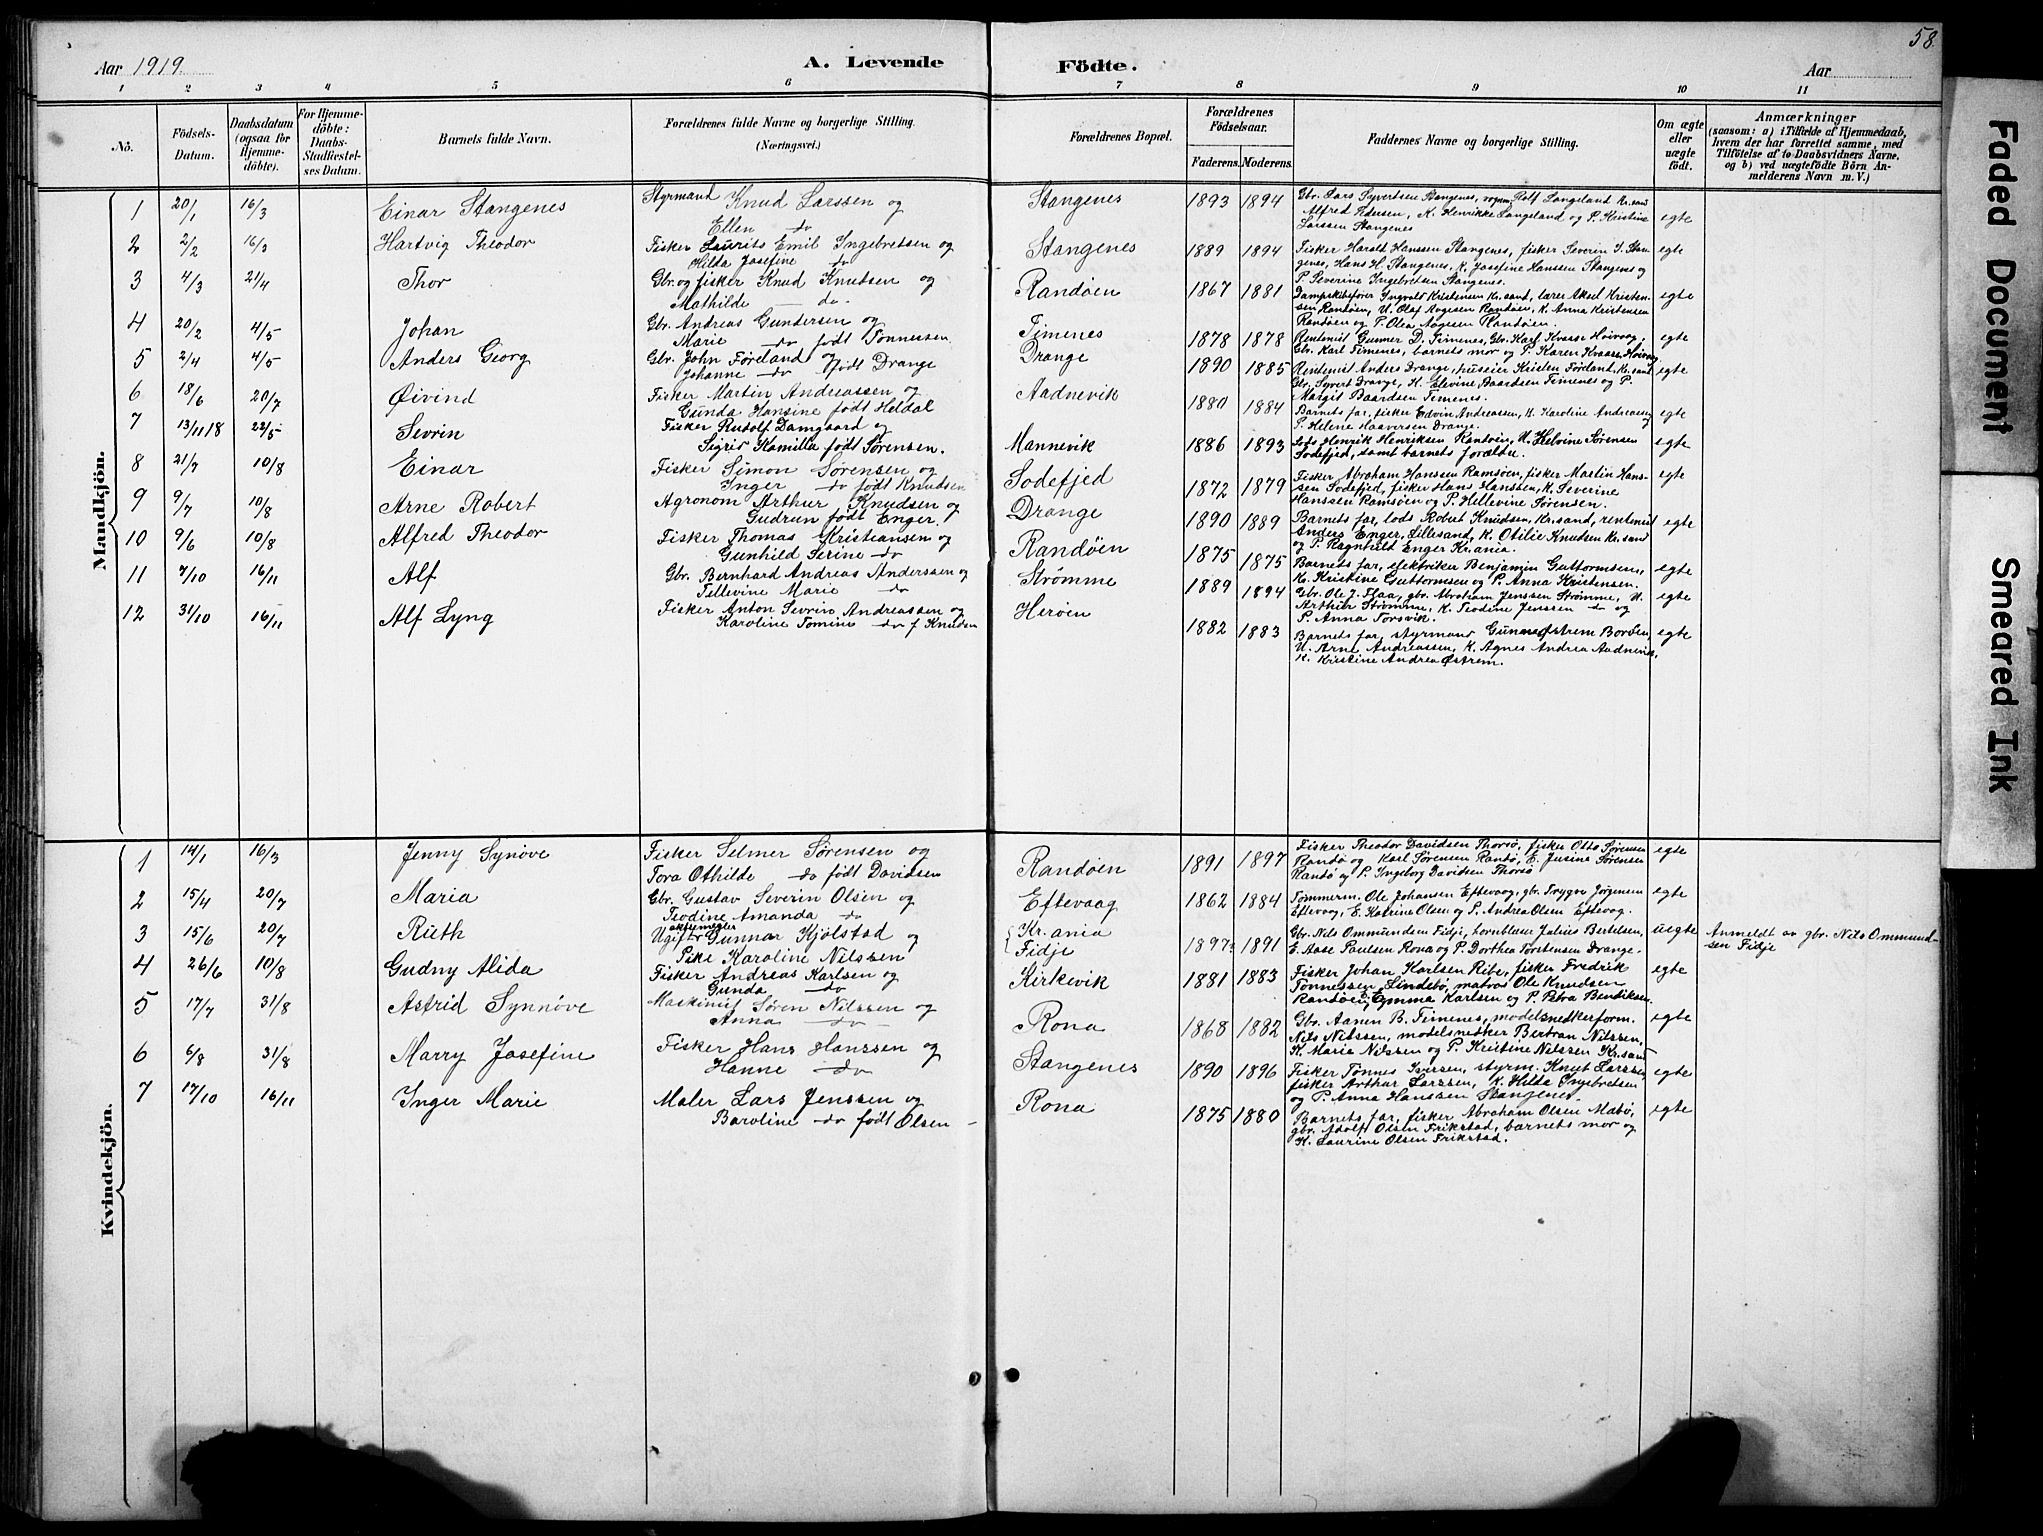 58
Aar 1919. A. Levende Födte. Aar
1 2 3 4 5 6 7 8 9 10 11
No. Födsels-Datum. Daabsdatum (ogsaa for Hjemmedöbte). For Hjemmedöbte: Daabs-Stadfæstelses Datum. Barnets fulde Navn. Forældrenes fulde Navne og borgerlige Stilling. (Næringsvei.) Forældrenes Bopæl. Forældrenes Födselsaar. Faderens. Moderens. Faddernes Navne og borgerlige Stilling. Om ægte eller uægte födt. Anmærkninger (saasom: a) i Tilfælde af Hjemmedaab, hvem der har forrettet samme, med Tilföielse af to Daabsvidners Navne, og b) ved uægtefödte Börn Anmelderens Navn m. V.)
Mandkjön.
1 20/1 16/3 Einar Stangenes Styrmand Knud Larssen og
Ellen do Stangenes 1893 1894 Gbr. Lars Syvertsen Stangenes, Rolf Langeland Kr.sand
Alfred Pedersen, K. Henrikke Langeland og P. Kristine
Larssen Stangenes egte
2 2/2 16/3 Hartvig Theodor Fisker Laurits Emil Ingebretsen og
Hilda Josefine do Stangenes 1889 1894 Fisker Harald Hanssen Stangenes, fisker Severin I. Stangenes,
Hans H. Stangenes, K. Josefine Hanssen Stangenes og
P. Severine Ingebretsen Stangenes. egte
3 4/3 21/4 Thor Gbr. og fisker Knud Knudsen og
Mathilde do. Randöen 1867 1881 Dampskibsfører Ingvald Kristensen Kr.sand, lærer Aksel Kristensen
Randöen, U. Olaf Aagesen Randöen, K. Anna Kristensen
Randöen og P. Olea Aagesen Randöen. egte
4 20/2 4/5 Johan Gbr. Andreas Gundersen og
Marie do født Tønnesen Timenes 1878 1878 Rentenist Gunner D. Timenes, Gbr. Karl Kvaase Høivaag,
Gbr. Karl Timenes, barnets mor og P. Karen Kvaase Høivaag egte
5 2/4 4/5 Anders Georg Gbr. John Føreland og
Johanne do født Drange Drange 1890 1885 Rentenist Anders Drange, huseier Kristen Føreland, Kr.sand
Gbr. Syvert Drange, K. Elevine Baardsen Timenes og P.
Margit Baardsen Timenes. egte
6 18/6 20/7 Øivind Fisker Martin Andreassen og
Gunda Hansine født Heldal Aadnevik 1880 1884 Barnets far, fisker Edvin Andreassen, K. Karoline Andreassen
P. Helene Haaversen Drange. egte
7 13/11 18 22/5 Sevrin Fisker Rudolf Damgaard og
Sigris Kamilla født Sørensen. Mannevik 1886 1893 Lods Henrik Henriksen Randöen, U. Helvine Sørensen
Sodefjed, samt barnets forældre. egte
8 21/7 10/8 Einar Fisker Simon Sørensen og
Inger do født Knudsen Sodefjed 1872 1879 Fisker Abraham Hanssen Ramsöen, fisker Martin Hanssen
Sodefjed, fisker Hans Hanssen, K. Severine
Hanssen Ramsöen og P. Hellevine Sørensen. egte
9 9/7 10/8 Arne Robert Agronom Arthur Knudsen og
Gudrun født Enger. Drange 1890 1889 Barnets far, lods Robert Knudsen, Kr.sand, rentenist
Anders Enger, Lillesand, K. Otilie Knudsen Kr.sand
og P. Ragnhild Enger Kr.ania. egte
10 9/6 10/8 Alfred Theodor Fisker Thomas Kristiansen og
Gunhild Serine do Randöen 1875 1875 Barnets far, elektriker Benjamin Guttormsen,
K. Kristine Guttormsen og P. Anna Kristensen. egte
11 7/10 16/11 Alf Gbr. Bernhard Andreas Anderssen og
Tellevine Marie do Strømme 1889 1894 Gbr. Ole J. Flaa, gbr. Abraham Jenssen Strømme, U.
Arthur Strømme, K. Teodine Jenssen do og
P. Anna Torsvik. egte
12 31/10 16/11 Alf Lyng Fisker Anton Sevrin Andreassen og
Karoline Tomine do f. Knudsen Heröen 1882 1883 Barnets far, styrmand Gunnar Østrem Boröen,
U. Arne Andreassen, K. Agnes Andrea Aadnevik,
K. Kristine Andrea Østrem. egte
Kvindekjön.
1 14/1 16/3 Jenny Synöve Fisker Selmer Sørensen og
Tora Othilde do født Davidsen Randöen 1891 1897 Fisker Theodor Davidsen Thorsö, fisker Otto Sørensen
Randö og Karl Sørensen Randö, E. Jusine Sørensen
Randö og P. Ingeborg Davidsen Thorsö egte
2 15/4 20/7 Maria Gbr. Gustav Severin Olsen og
Teodine Amanda do Eftevaag 1862 1884 Tømmerm. Ole Johansen Eftevaag, gbr. Trygve Jørgensen
Eftevaag, E. Katrine Olsen og P. Andrea Olsen Eftevaag. egte
3 15/6 20/7 Ruth Ugift aktiemegler Gunnar Kjölstad og
Pike Karoline Nilssen Kr.ania
Fidje 1897 1891 Gbr. Nils Ommundsen Fidje, hornblaser Julius Bertelsen,
E. Aase Paulsen Rona og P. Dorthea Torstensen Drange. uegte Anmeldt av gbr. Nils Ommundsen Fidje
4 26/6 10/8 Gudny Alida Fisker Andreas Karlsen og
Gunda do Kirkevik 1881 1883 Fisker Johan Karlsen Ribe, fisker Fredrik
Tønnessen Lindebö, matros Ole Knudsen
Randöen, Emma Karlsen og P. Petra Bendiksen. egte
5 17/7 31/8 Astrid Synnöve Maskinist Sören Nilssen og
Anna do Rona 1868 1882 Gbr. Aanen B. Timenes, modelsnedkerform.
Nils Nilssen, modelsnedker Bertran Nilssen,
K. Maria Nilssen og P. Kristine Nilssen Kr.sand egte
6 6/8 31/8 Marry Josefine Fisker Hans Hanssen og
Hanne do Stangenes 1890 1896 Fisker Tønnes Iversen, styrm. Knut Larssen,
fisker Arthur Larssen, K. Hilda Ingebretsen
og P. Anna Hanssen Stangenes. egte
7 17/10 16/11 Inger Marie Maler Lars Jenssen og
Baroline do født Olsen Rona 1875 1880 Barnets far, fisker Abraham Olsen Mabö,
gbr. Adolf Olsen Frikstad, barnets mor og
K. Laurine Olsen Frikstad. egte
Faded Document
Smeared Ink